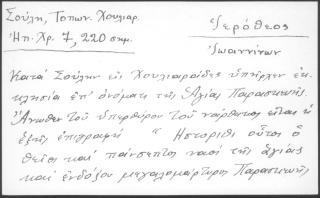 Σούλη, Τοπων. Χουλιαρ.
Ἠπ. Χρ. 7, 220 σημ.
Ἱερόθεος
Ἰωαννίνων
Κατά Σούλην εἰς Χουλιαράδες ὑπῆρχεν ἐκ-
κλησία ἐπ' ὀνόματι τῆς Ἁγίας Παρασκευῆς.
Ἄνωθεν τοῦ ὑπερθύρου τοῦ νάρθηκος εἶναι ἡ
ἑξῆς ἐπιγραφή " Ηστορίθι οὗτος ὁ
θεῖος καί πάνσεπτος ναός τῆς ἁγίας
καί ἐνδόξου μεγαλομάρτυρος Παρασκευῆς